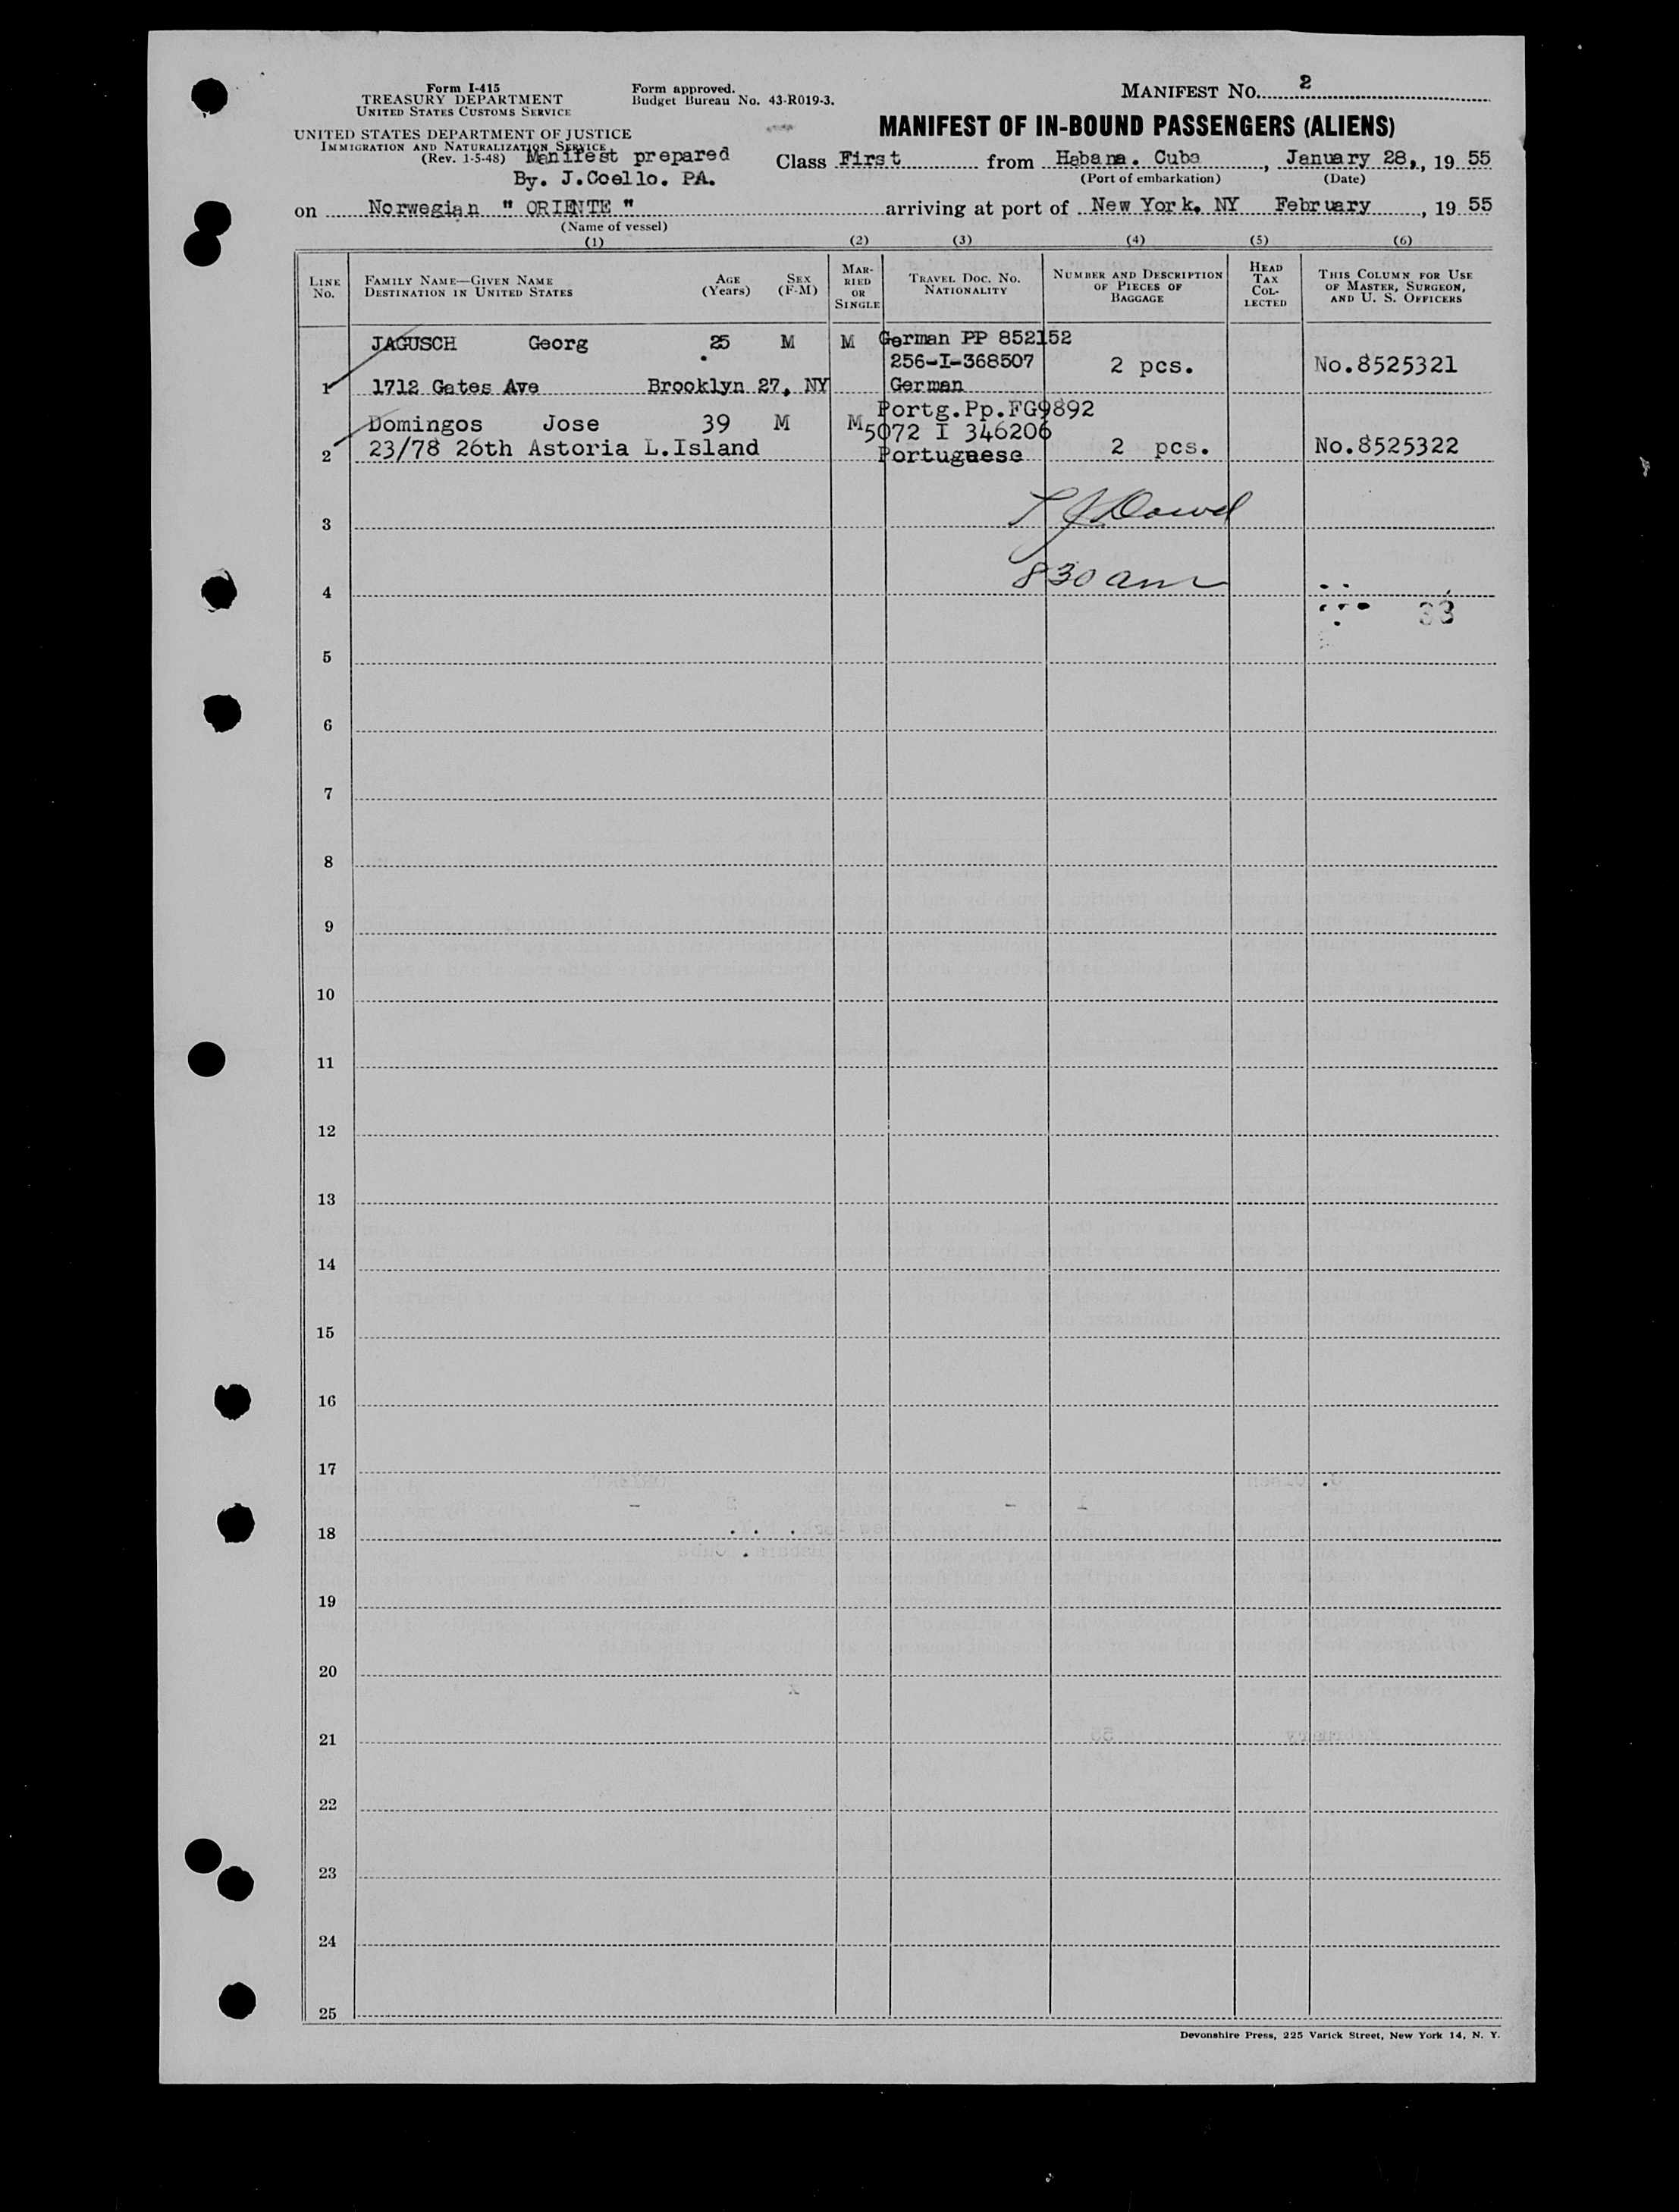 Form I-415
TREASURY DEPARTMENT
UNITED STATES CUSTOMS SERVICE
UNITED STATES DEPARTMENT OF JUSTICE
IMMIGRATION AND NATURALIZATION SERVICE
(Rev. 1-5-48) Manifest prepared
By. J.Coello. PA.
Form approved.
Budget Bureau No. 43-R019-3.
MANIFEST NO. 2
MANIFEST OF IN-BOUND PASSENGERS (ALIENS)
Class First from Habana. Cuba, January 28,, 19 55
(Port of embarkation) (Date)
on Norwegian " ORIENTE " arriving at port of New York. NY February, 19 55
(Name of vessel)
(1) (2) (3) (4) (5) (6)
LINE NO.
FAMILY NAME—GIVEN NAME
DESTINATION IN UNITED STATES
AGE (Years)
SEX (F-M)
MAR-
RIED
OR
SINGLE
TRAVEL DOC. NO.
NATIONALITY
NUMBER AND DESCRIPTION
OF PIECES OF
BAGGAGE
HEAD
TAX
COL-
LECTED
THIS COLUMN FOR USE
OF MASTER, SURGEON,
AND U. S. OFFICERS
JAGUSCH Georg 25 M M German PP 852152
256-I-368507 2 pcs. No.8525321
1 1712 Gates Ave Brooklyn 27, NY German
Domingos Jose 39 M M Portg.Pp.FG9892
5072 I 346206
2 23/78 26th Astoria L.Island Portuguese 2 pcs. No.8525322
3
830 am
4
33
5
6
7
8
9
10
11
12
13
14
15
16
17
18
19
20
21
22
23
24
25
Devonshire Press, 225 Varick Street, New York 14, N. Y.